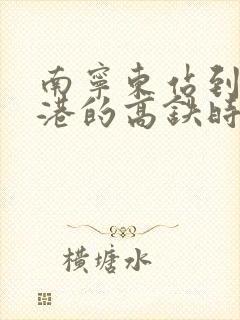 南寧東佔到
港的高鉄時
橫塘水